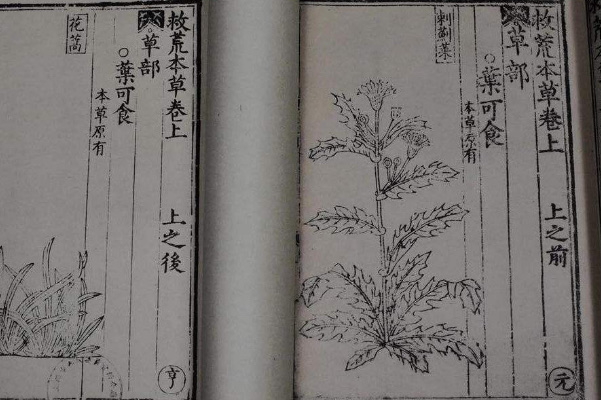 救荒本草卷上　上之前
草部
○葉可食
本草原有
刺薊菜
元
救荒本草卷上　上之後
草部
○葉可食
本草原有
花蒿
亨